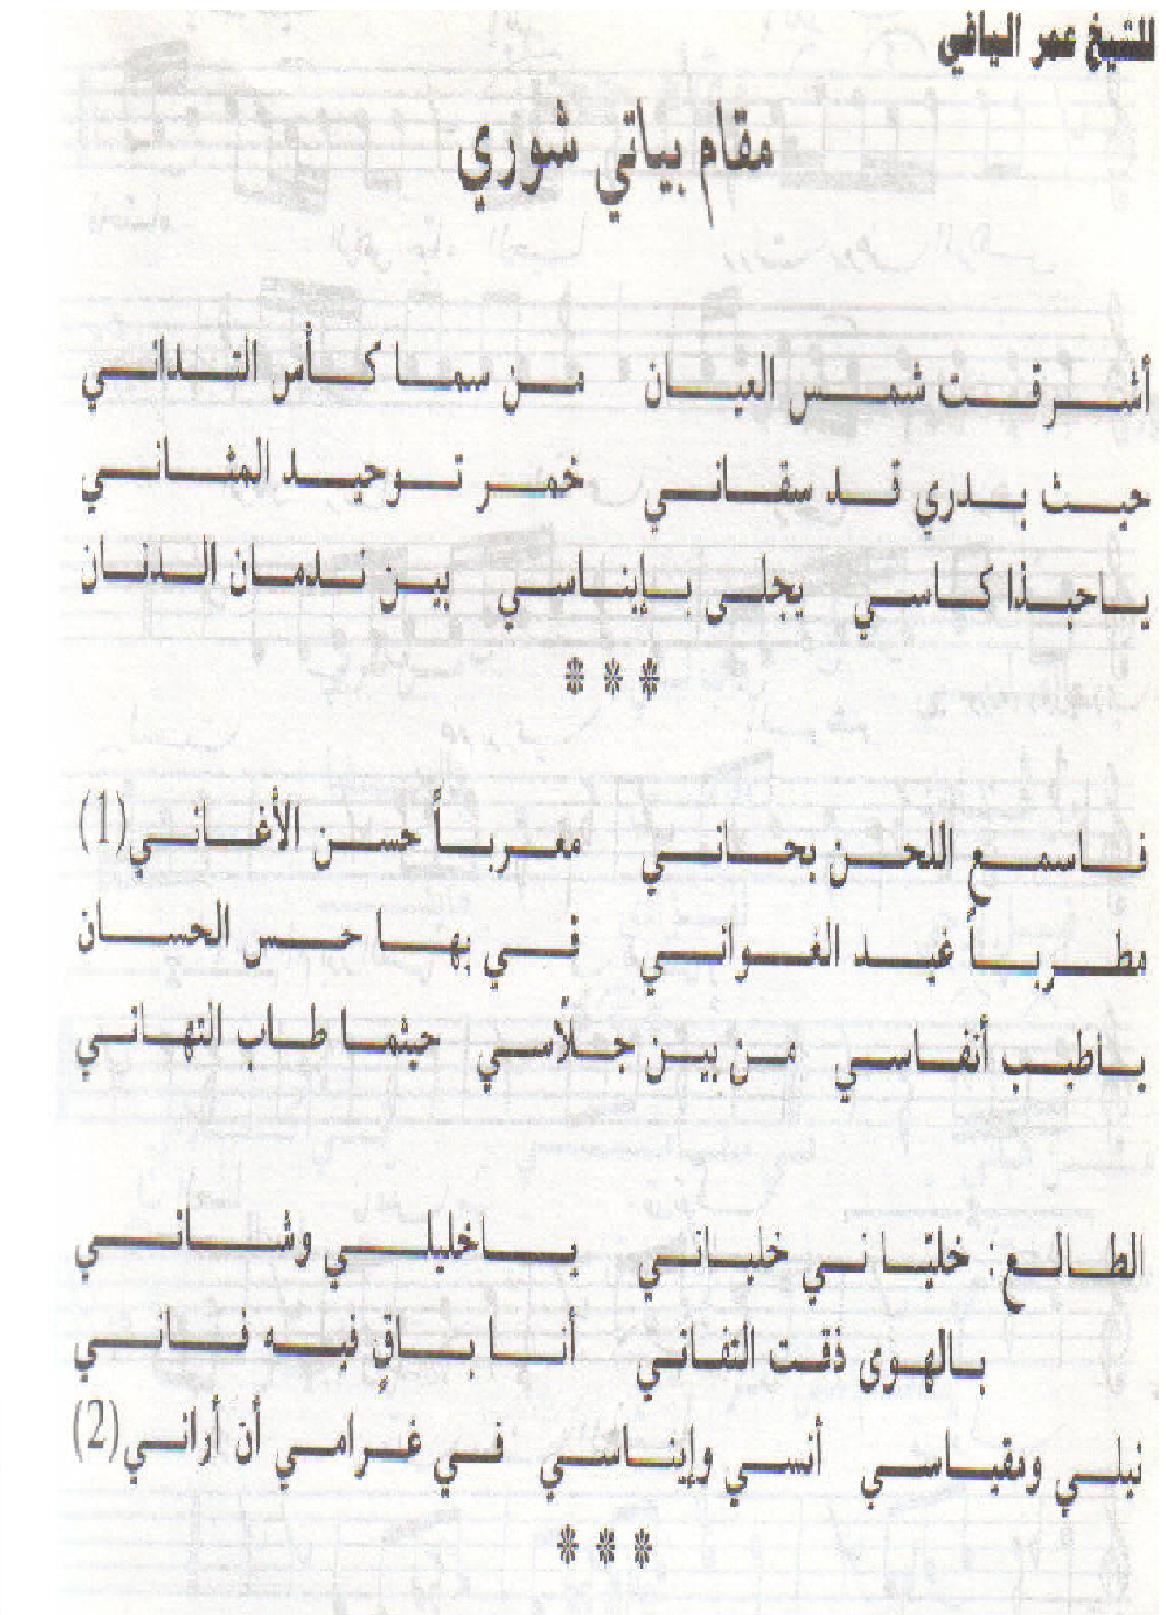 للشيخ عمر اليافي
مقام بياتي شوري
أشرقت شمس العيان من سما كأس التداني
حيث بدري قد سقاني خمر توحيد المثاني
ياحبذا كاسي يجلى بإيناسي بين ندمان الدنان
***
فاسمع اللحن بحاني معرباً حسن الأغاني(1)
مطرباً غيد الغواني في بها حسن الحسان
ياطيب أنفاسي من بين جلاّسي حيثما طاب التهاني
الطالع: خليّاني خلياني ياخليلي وشاني
بالهوى ذقت التفاني أنا باقٍ فيه فاني
نيلي ومقياسي أنسي وإيناسي في غرامي أن أراني(2)
***